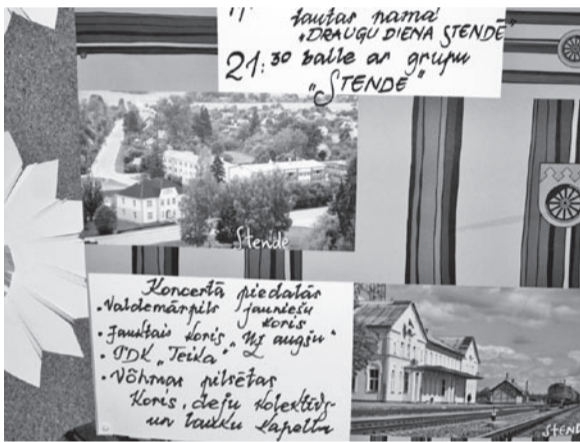 tautas namā
"DRAUGU DIENA STENDĒ"
21:30 balle ar grupu
"STENDE"
Stende
Koncertā piedalās
• Valdemārpils jauniešu
koris
• Jauktais koris "Uz augšu"
• TDK "Teika"
• Võhmas pilsētas
Koris, deju kolektīvs
un lauku kapella
STEND